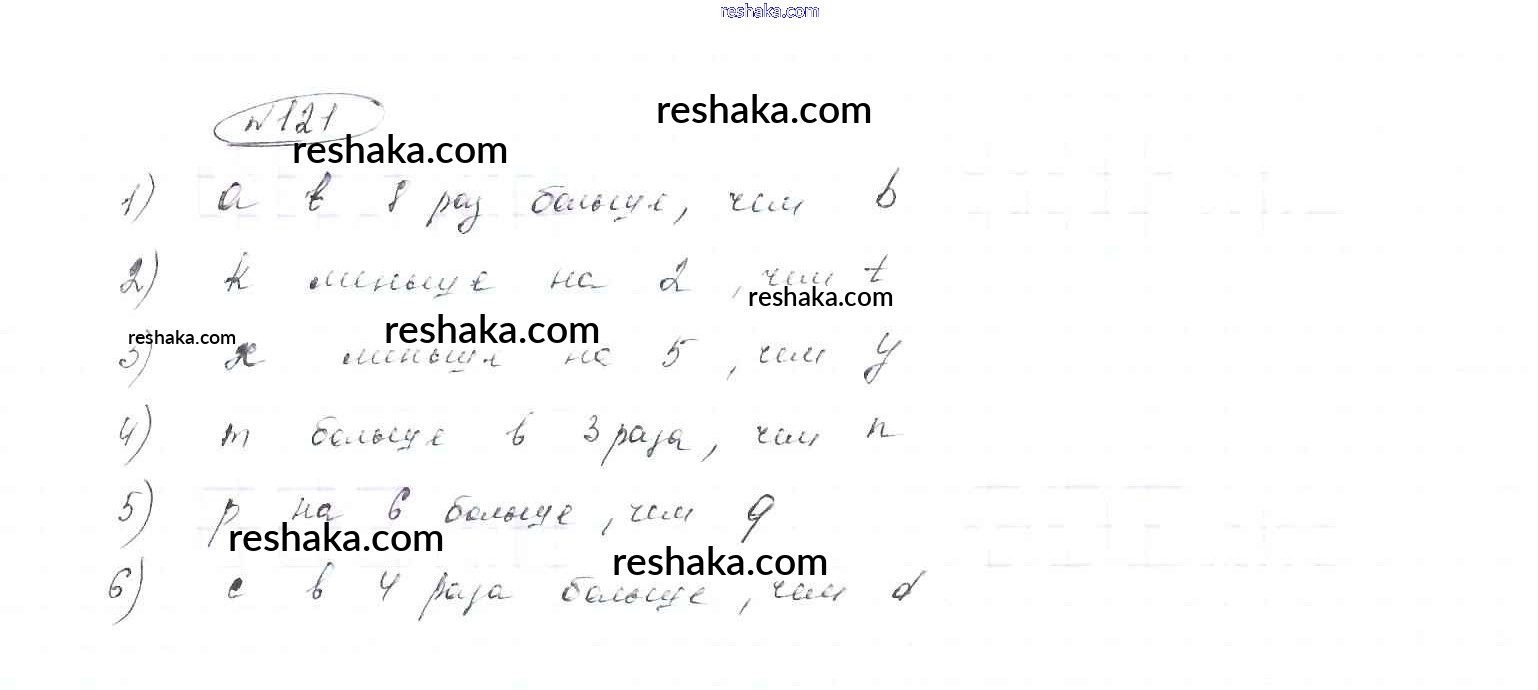 reshaka.com
reshaka.com
№121
reshaka.com
1) a в 8 раз больше, чем b
2) k меньше на 2, чем t
reshaka.com
reshaka.com
reshaka.com
3) x меньше на 5, чем y
4) m больше в 3 раза, чем n
5) p на 6 больше, чем q
reshaka.com
reshaka.com
6) c в 4 раза больше, чем d